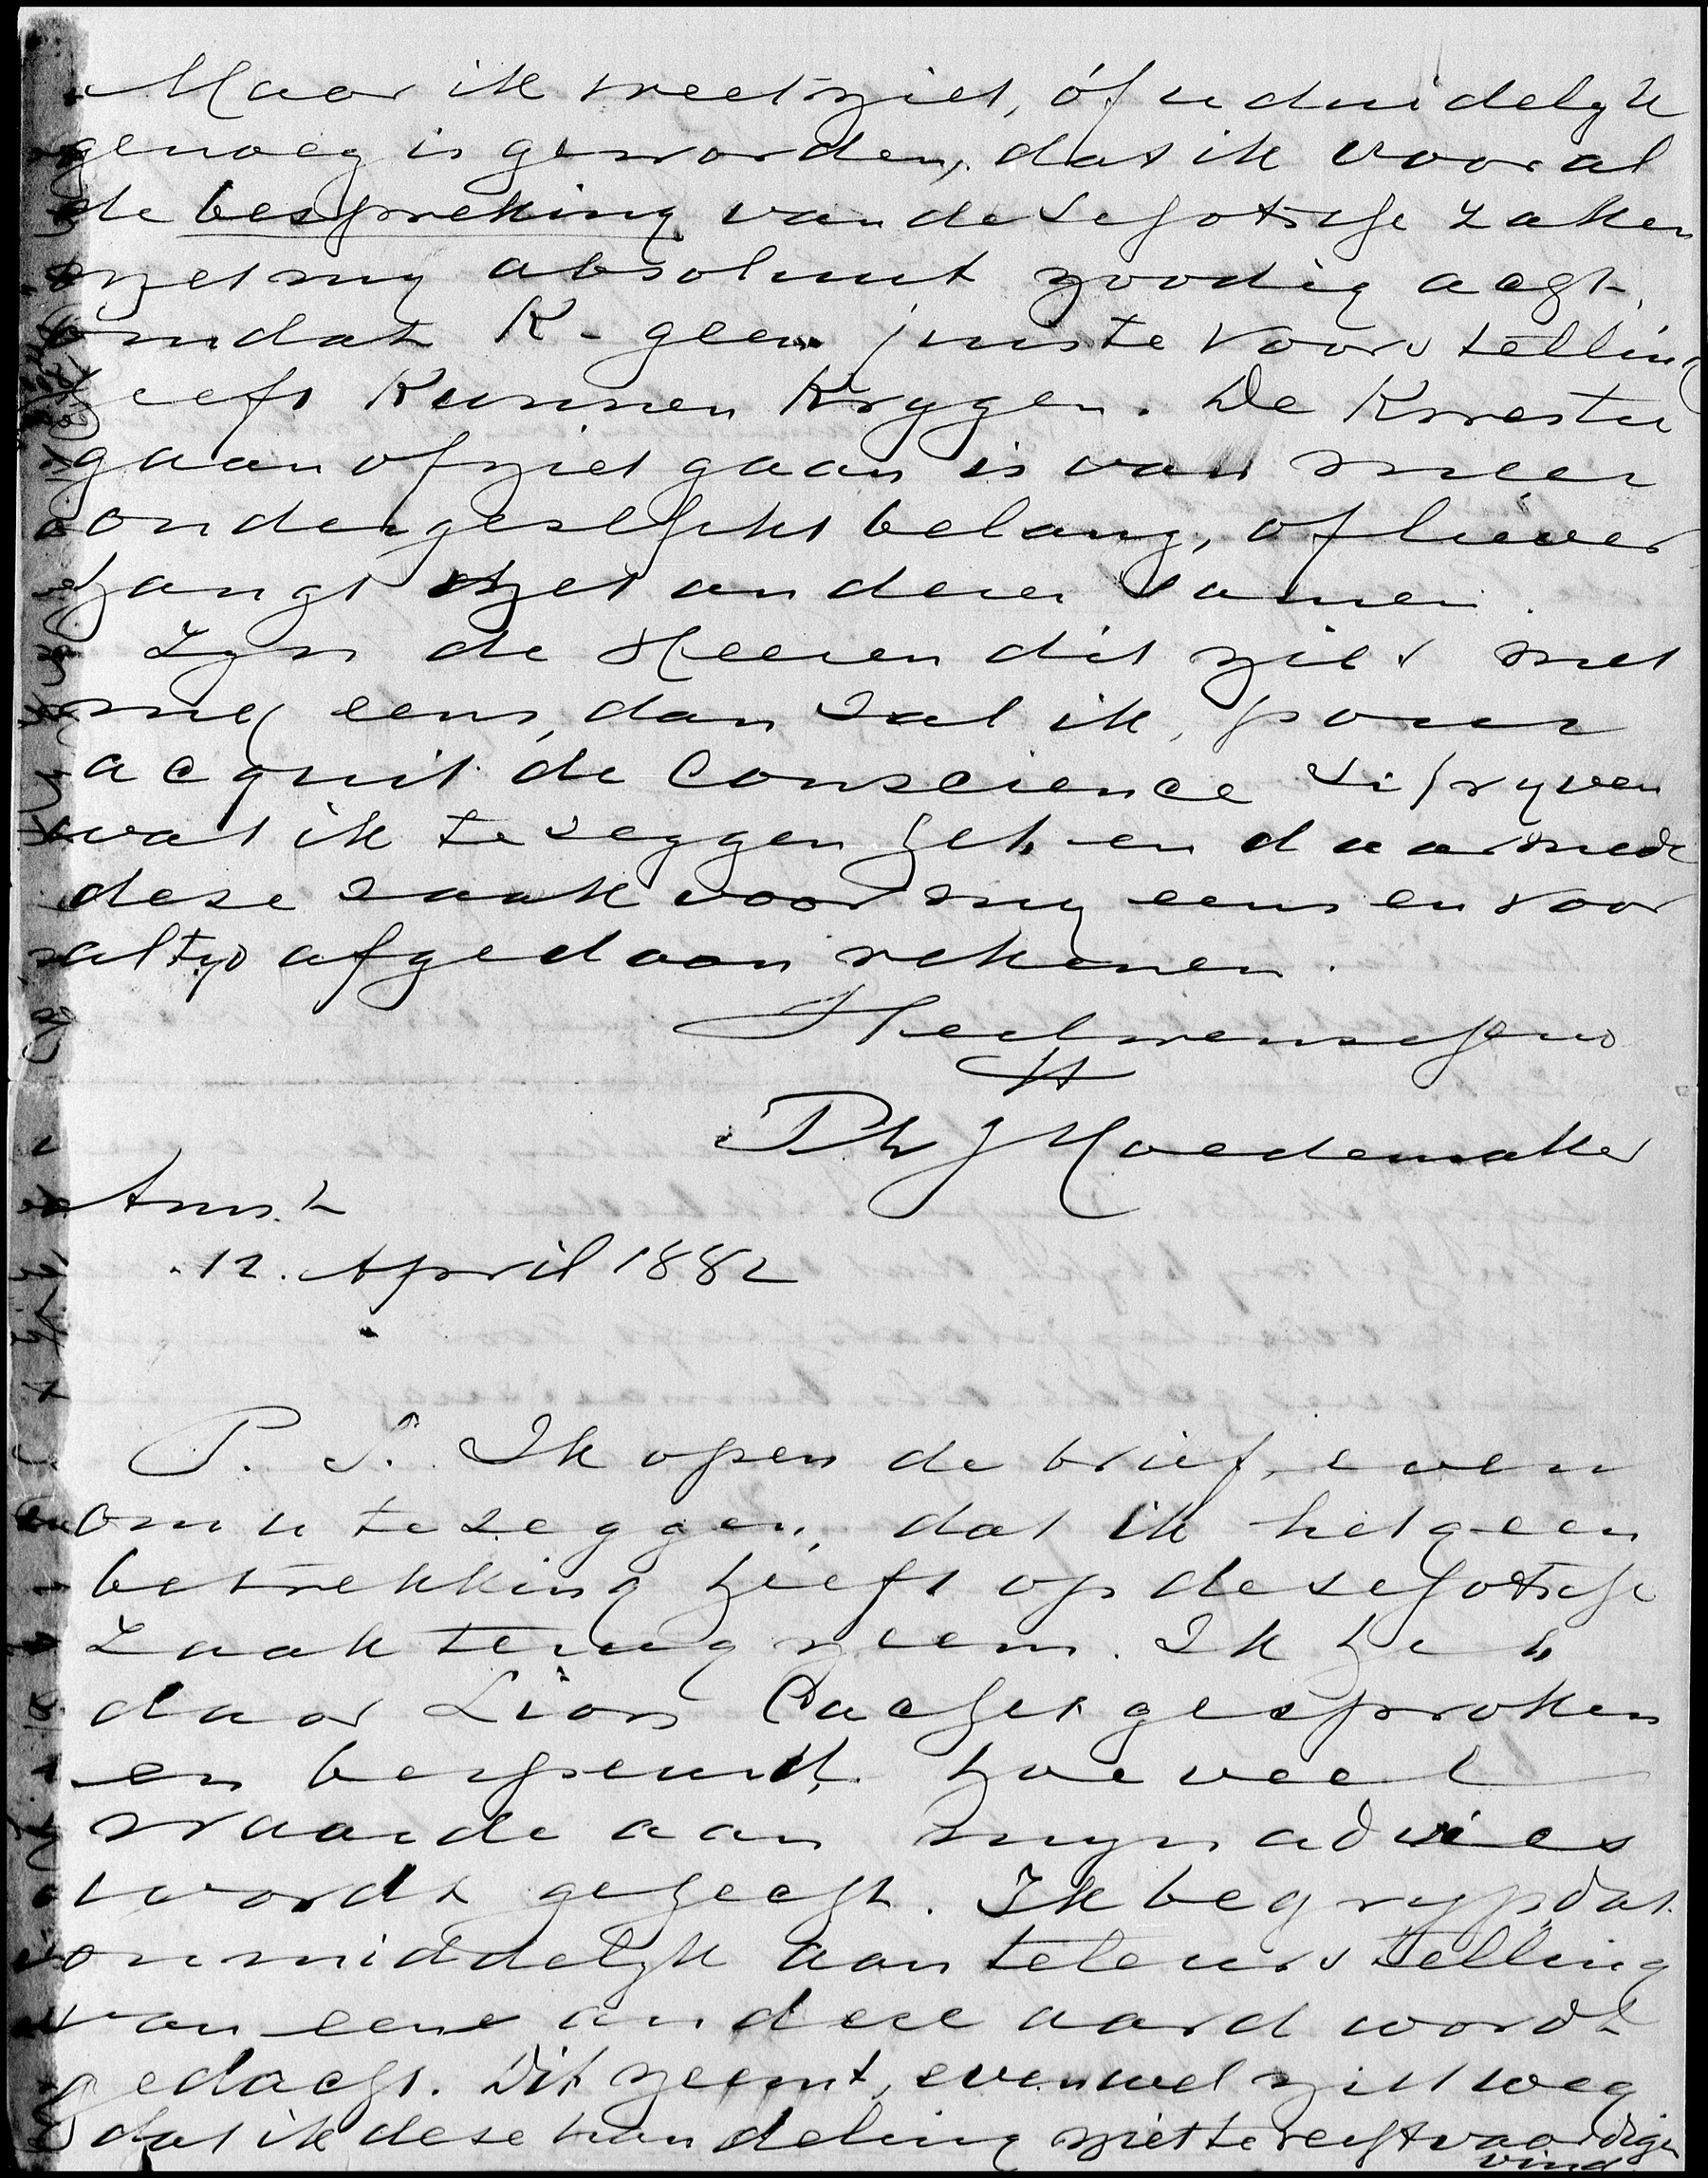 Maar ik weet niet, óf u duidelyk
genoeg is geworden, dat ik vooral
de bespreking van de Schotsche zaken
met my absoluut noodig acht,
omdat K- geen juiste voorstelling
heeft kunnen krygen. De Kwestie
gaan of niet gaan is van meer
ondergeschikt belang, of liever
hangt met andere samen.
Zyn de Heeren dit niet met
my eens, dan zal ik, pour
acquit de conscience schryven
wat ik te zeggen heb en daarmede
deze zaak voor my eens en voor
altyd afgedaan rekenen.
Heilwenschend
tt
Ph J Hoedemaker
Amst
12. April 1882
P. S. Ik open de brief, even
om u te zeggen, dat ik hetgeen
betrekking heeft op de schotsche
Zaak terug neem. Ik heb
daar Lion Cachet gesproken
en bespeurd, hoeveel
waarde aan myn advies
wordt gehecht. Ik begryp, dat
onmiddelyk aan teleurstelling
van eene andere aard wordt
gedacht. Dit neemt, evenwel niet weg
dat ik deze handeling niet te rechtvaardigen
vind